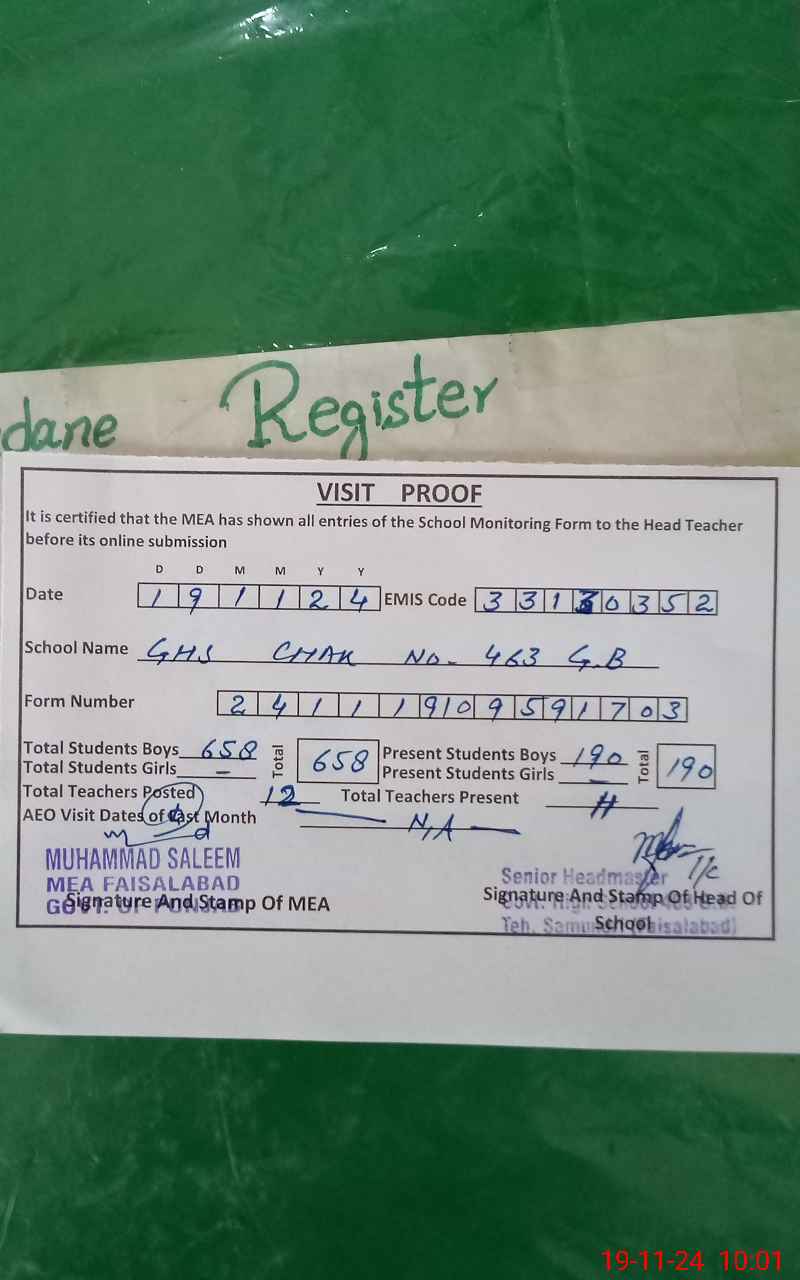 dane Register
VISIT PROOF
It is certified that the MEA has shown all entries of the School Monitoring Form to the Head Teacher
before its online submission
D D M M Y Y
Date 1 9 1 1 2 4 EMIS Code 3 3 1 3 0 3 5 2
School Name GHS CHAK NO. 463 G.B
Form Number 2 4 1 1 1 9 1 0 9 5 9 1 7 0 3
Total Students Boys 658 Total 658 Present Students Boys 190 Total 190
Total Students Girls - Present Students Girls -
Total Teachers Posted 12 Total Teachers Present 11
AEO Visit Dates of Last Month N,A
MUHAMMAD SALEEM
MEA FAISALABAD
GOVT. OF PUNJAB
Signature And Stamp Of MEA
I/c
Senior Headmaster
Signature And Stamp Of Head Of
School
Teh. (Faisalabad)
19-11-24 10:01